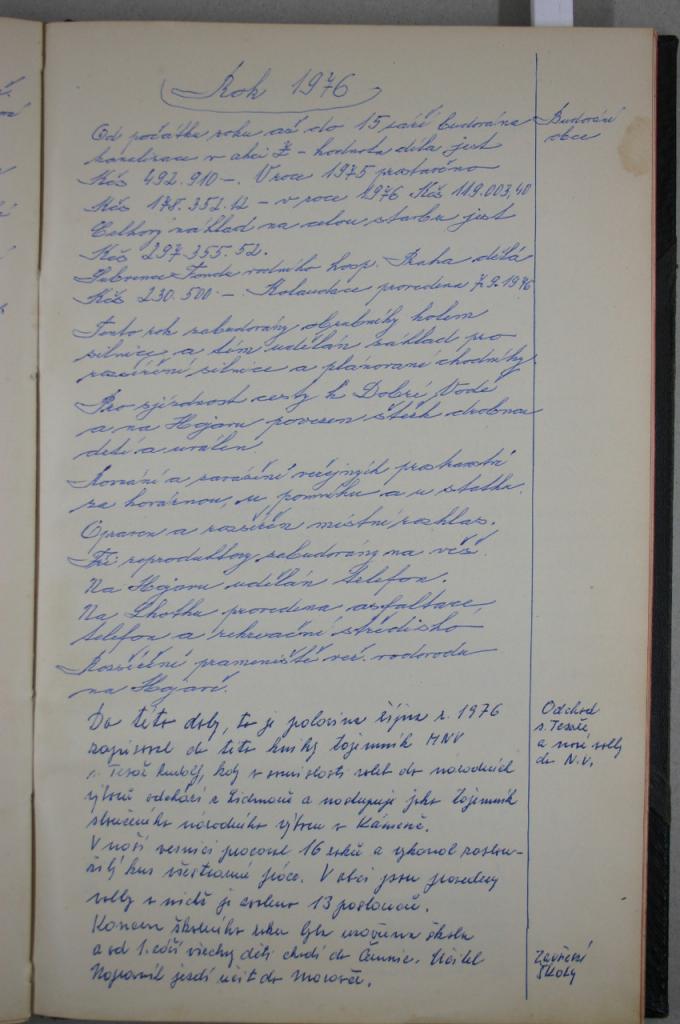 Rok 1976
Od počátku roku až do 15 září budována
Budování
obce
kanalizace v akci Z – hodnota díla jest
Kčs 492.910–. V roce 1975 prostavěno
Kčs 178.352.12 – v roce 1976 Kčs 119.003,40
Celkový náklad na celou stavbu jest
Kčs 297.355.52.
Subvence Fondu vodního hosp. Praha dělá
Kčs 230.500–. Kolaudace provedena 7.9.1976
Tento rok zabudovány obrubníky kolem
silnice, a tím udělán základ pro
rozšíření silnice a plánované chodníky.
Pro sjízdnost cesty k Dobré Vodě
a na Hojavu povezen štěrk drobna
deti a uválen.
Rovnání a zavážení veřejných prostranství
za kovárnou, u pomníku a u statku.
Opraven a rozšířen místní rozhlas.
Tři reproduktory zabudovány na věž.
Na Hojavu udělán telefon.
Na Lhotku provedena asfaltace,
telefon a rekreační středisko
Rozšíření prameniště veř. vodovodu
na Hojavě.
Do této doby, to je polovina října r. 1976
Odchod
s. Tesaře
a nové volby
do N.V.
zapisoval do této knihy tajemník MNV
s. Tesař Rudolf, kdy v souvislosti voleb do národních
výborů odchází z Lidmaně a nastupuje jako tajemník
sloučeného národního výboru v Kámeně.
V naší vesnici pracoval 16 roků a vykonal zaslou-
žilý kus všestranné práce. V obci jsou provedeny
volby v nichž je zvoleno 13 poslanců.
Koncem školního roku byla uzavřena škola
a od 1. září všechny děti chodí do Černovic. Učitel
Zavření
školy
Napravil jezdí učit do Moravče.